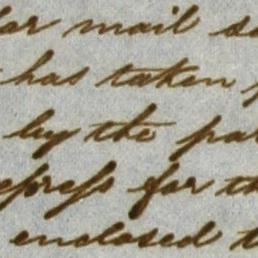 lar mail s
has taken
by the par
express for th
enclosed t